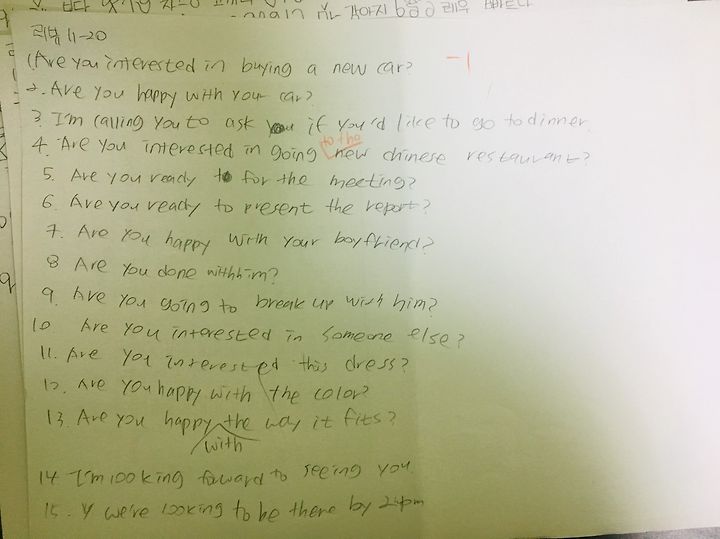 리뷰 11-20
1 Are you interested in buying a new car? -1
2. Are you happy with your car?
3. I'm calling you to ask you if you'd like to go to dinner.
4. Are you interested in going to the new chinese restaurant?
5. Are you ready to for the meeting?
6. Are you ready to present the report?
7. Are you happy with your boyfriend?
8 Are you done with him?
9. Are you going to break up with him?
10 Are you interested in someone else?
11. Are you interested this dress?
12. Are you happy with the color?
13. Are you happy with the way it fits?
14. I'm looking forward to seeing you.
15. we're looking to be there by pm